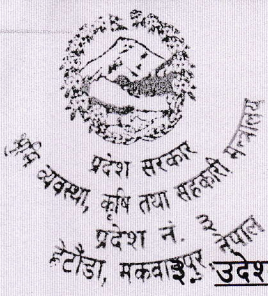 प्रदेश सरकार
भूमि व्यवस्था, कृषि तथा सहकारी मन्त्रालय
प्रदेश नं. ३
हेटौडा, मकवानपुर नेपाल
३. उदेश